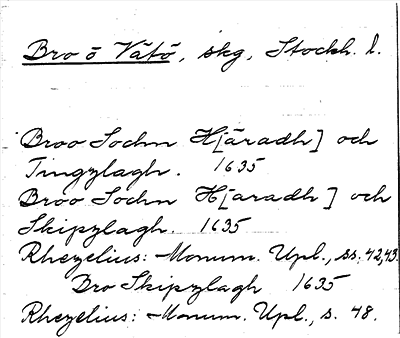 Bro o Vätö, skg, Stockh. l.
Broo Sochn H[äradh] och
Tingzlagh. 1635
Broo Sochn H[aradh] och
Skipzlagh. 1635
Rhezelius: Monum. Upl., ss. 42,43.
Bro Skipzlagh 1635
Rhezelius: Monum. Upl., s. 48.